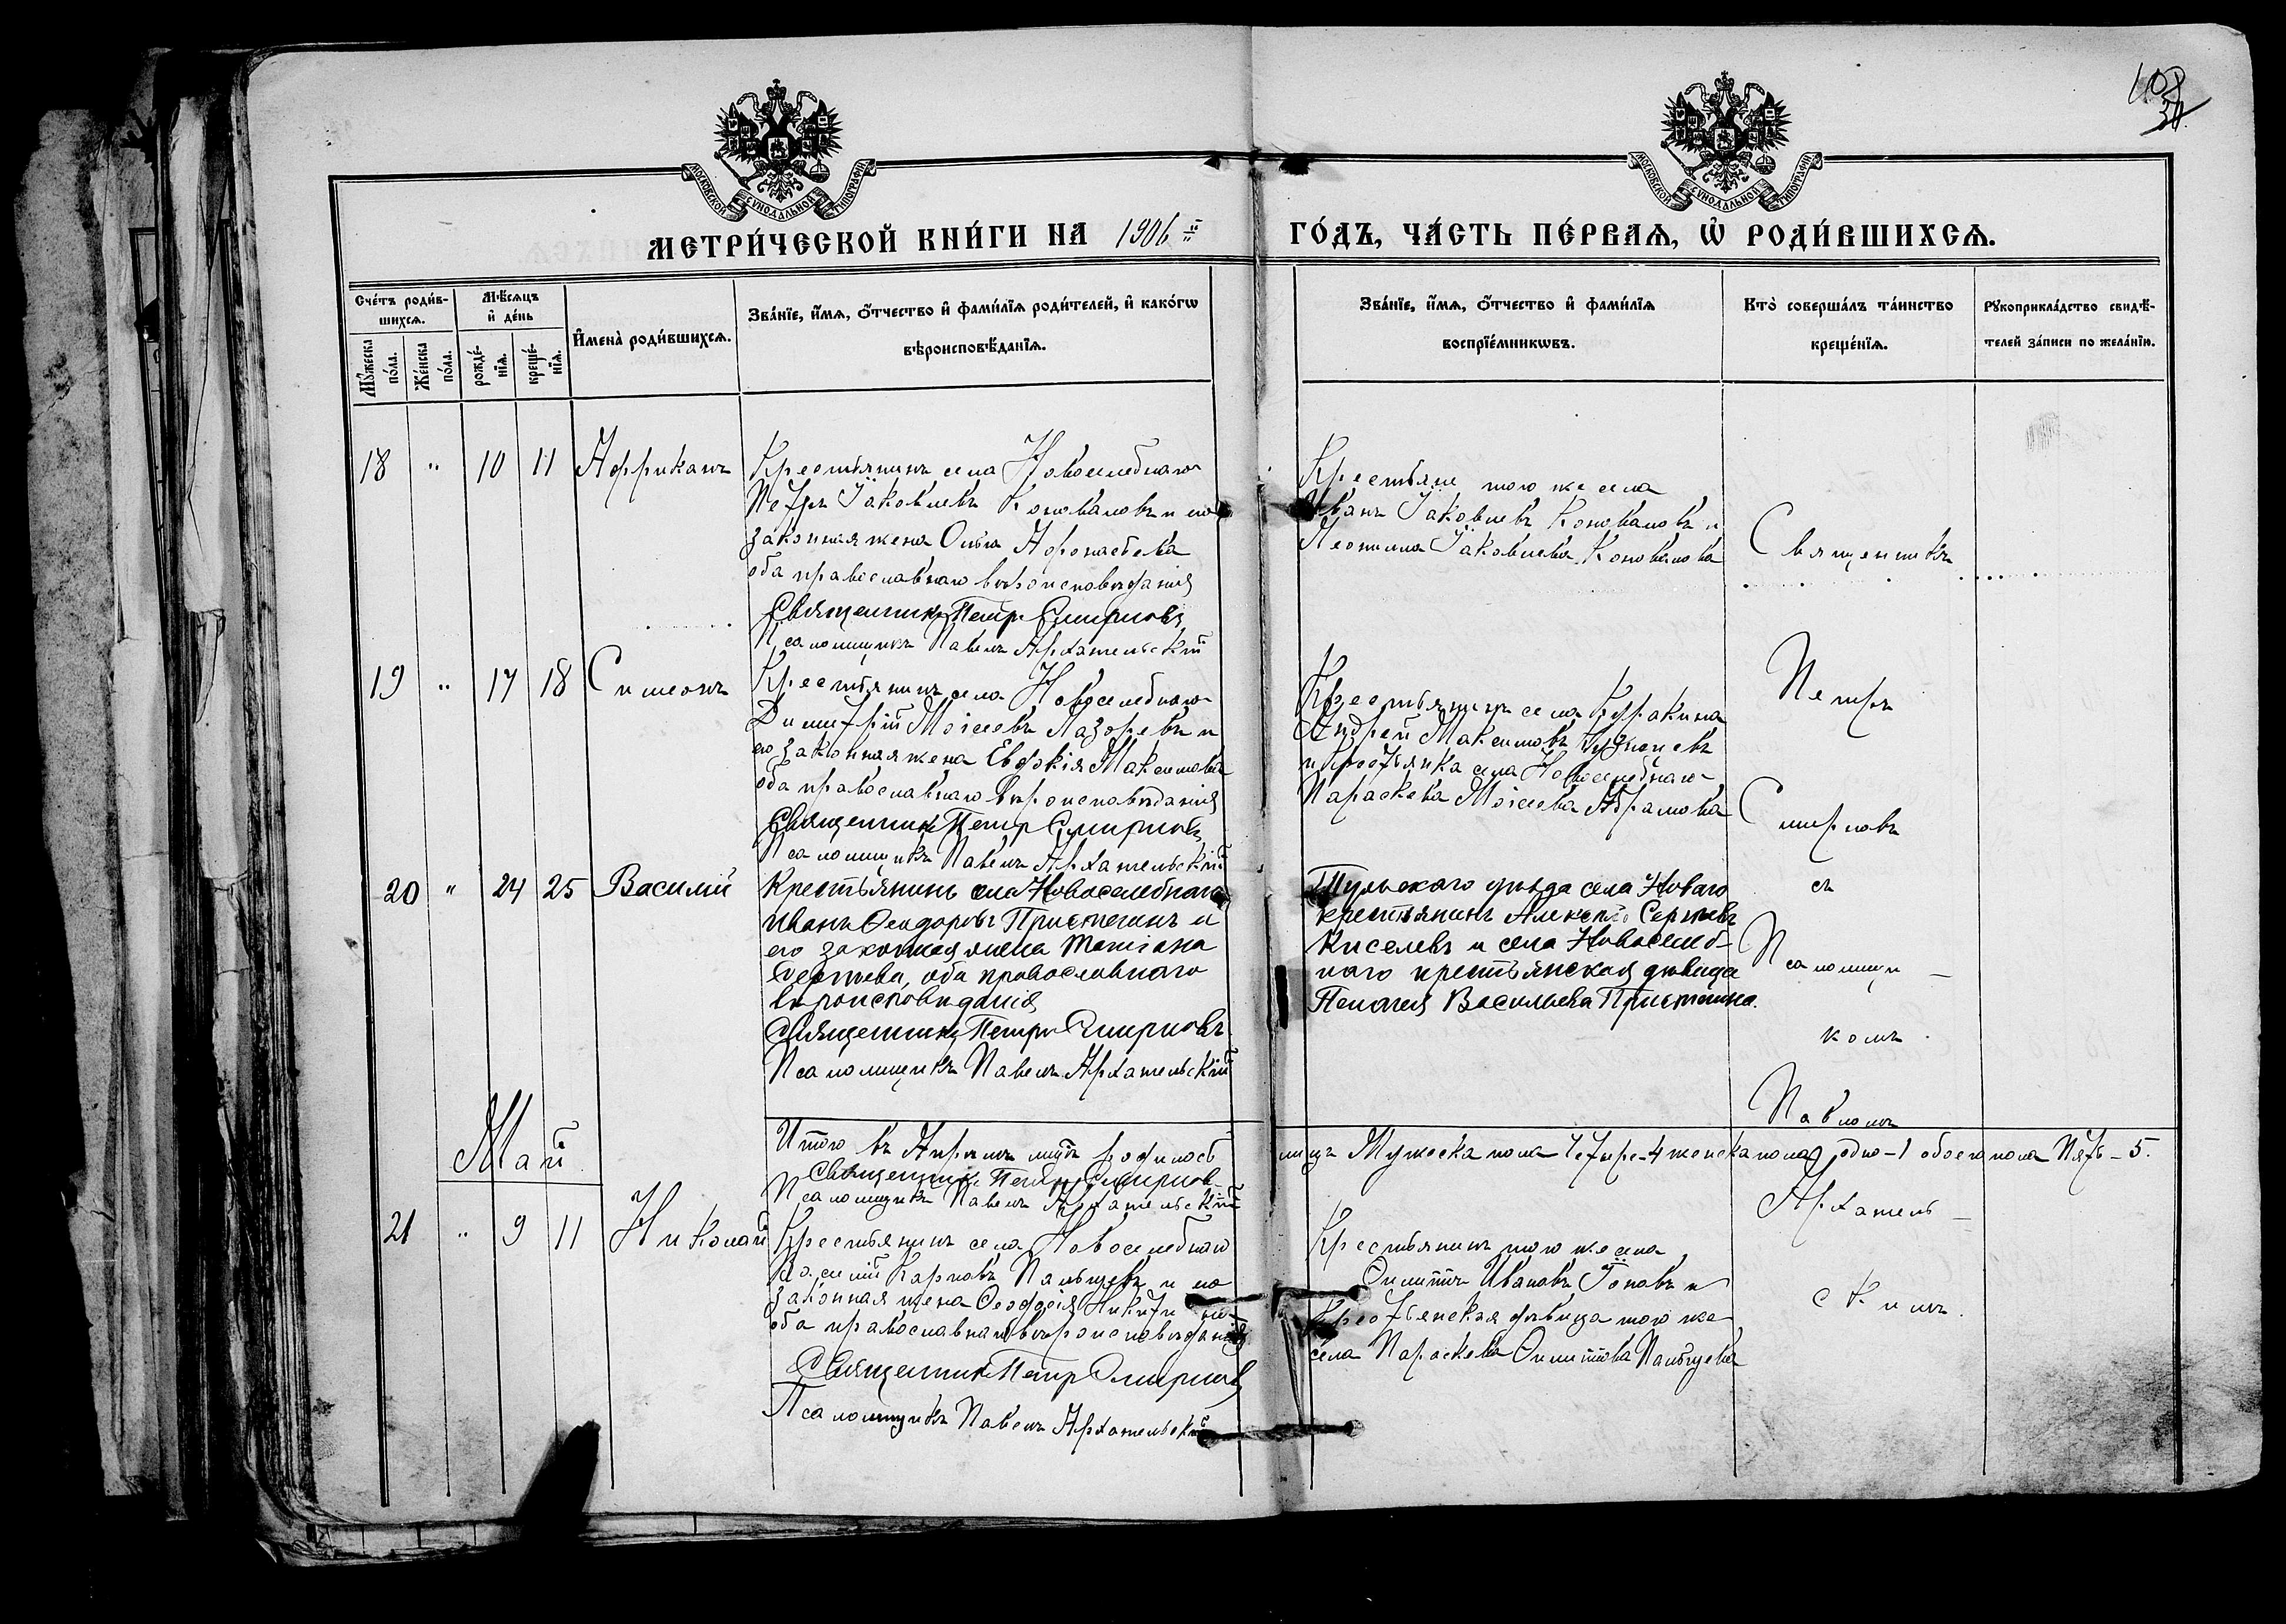 108
34.
МОСКОВСКОЙ СѴНОДАЛЬНОЙ ТИПОГРАФІИ
МОСКОВСКОЙ СѴНОДАЛЬНОЙ ТИПОГРАФІИ
МЕТРИ́ЧЕСКОЙ КНИ́ГИ НА 1906 й ГО́ДЪ, ЧА́СТЬ ПЕ́РВАѦ, Ѽ РОДИ́ВШИХСѦ.
Сче́тъ роди́в-
шихсѧ.
Мꙋ́жеска по́ла.
Же́нска по́ла.
Мѣ́сѧцъ
и҆ де́нь
рожде́-
нїѧ.
креще́-
нїѧ.
И҆мена̀ роди́вшихсѧ.
Зва́нїе, и҆́мѧ, ѻ҆́тчество и҆ фами́лїѧ роди́телей, и҆ како́гѡ
вѣроисповѣ́данїѧ.
Зва́нїе, и҆́мѧ, ѻ҆́тчество и҆ фами́лїѧ
воспрїе́мникѡвъ.
Кто̀ соверша́лъ та́инство
креще́нїѧ.
Рꙋкоприкла́дство свидѣ́-
телей за́писи по жела́нїю.
18 " 10 11 Африканъ
Крестьянинъ села Новоселебнаго
Петръ Іаковлевъ Коноваловъ и его
законная жена Ольга Афонасьева
оба православнаго вѣроисповѣданія
Священникъ Петръ Смирновъ
Псаломщикъ Павелъ Архангельскій
Крестьяне того же села
Иванъ Іаковлевъ Коноваловъ и
Неонила Іаковлева Коновалова
Священникъ
19 " 17 18 Симеонъ
Крестьянинъ села Новоселебнаго
Димитрій Моісеевъ Лазоревъ и
его законная жена Евдокія Максимова
оба православнаго вѣроисповѣданія
Священникъ Петръ Смирновъ
Псаломщикъ Павелъ Архангельскій
Крестьянинъ села Куракина
Андрей Максимовъ Кузнецевъ
и крестьянка села Новоселебнаго
Параскева Моісеева Абрамова
Петръ
Смирновъ
20 " 24 25 Василій
Крестьянинъ села Новоселебнаго
Иванъ Ѳеодоровъ Пристегинъ и
его законная жена Татіана
Сергѣева, оба православнаго
вѣроисповѣданія
Священникъ Петръ Смирновъ
Псаломщикъ Павелъ Архангельскій
Тульскаго уѣзда села Новаго
крестьянинъ Алексѣй Сергѣевъ
Киселевъ и села Новоселеб-
наго крестьянская дѣвица
Пелагея Васильева Пристегина.
съ
Псаломщи-
комъ
Павломъ
Май
Итого въ Апрѣлѣ мѣсцѣ родилось
мица Мужеска пола четыре-4 женска пола одно-1 обоего пола Пять-5.
Священникъ Петръ Смирновъ
Псаломщикъ Павелъ Архангельскій
Архангель-
21 " 9 11 Николай
Крестьянинъ села Новоселебнаго
Карповъ Пальцевъ и его
законная жена Ѳеодосія
оба православнаго вѣроисповѣданія
Священникъ Петръ Смирновъ
Псаломщикъ Павелъ Архангельскій
Крестьянинъ того же села
Филиппъ Ивановъ и
Крестьянская дѣвица того же
села Параскева Филиппова Пальцева
скимъ.